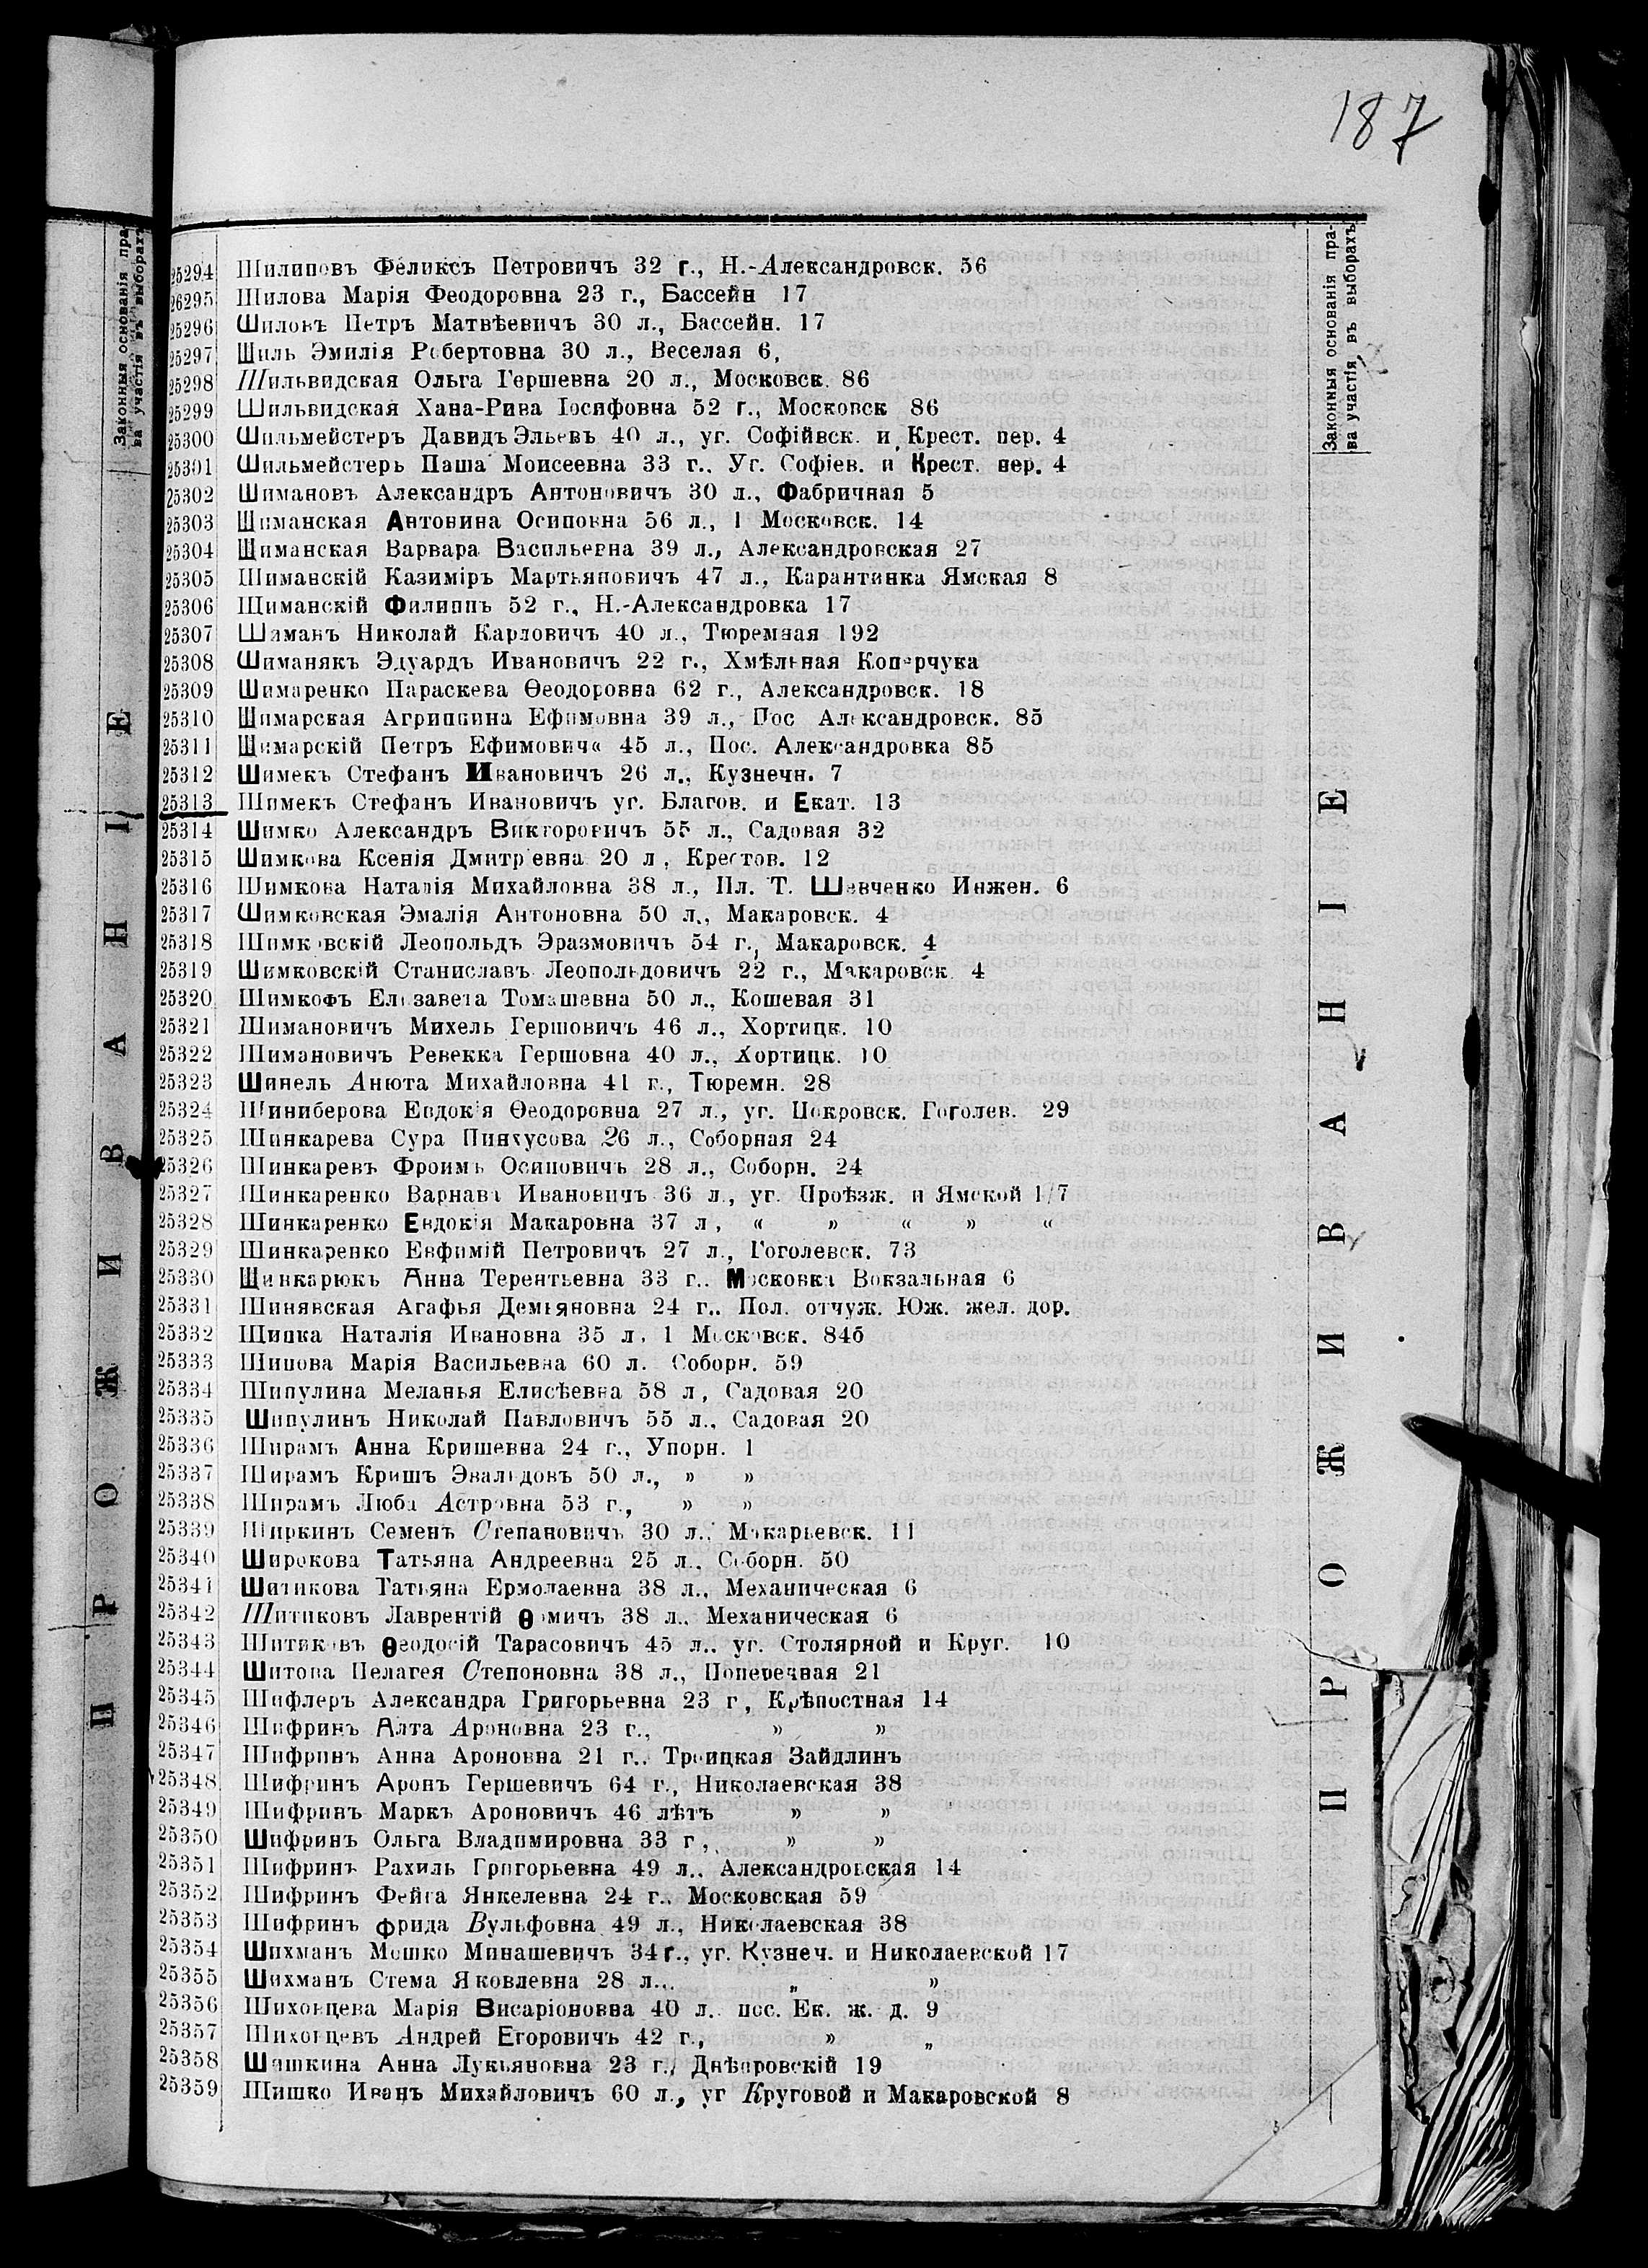 187
Законныя основанія пра-
ва участія въ выборахъ
25294 Шилиповъ Феликсъ Петровичъ 32 г., Н.-Александровск. 56
26295 Шилова Марія Феодоровна 23 г., Бассейн 17
25296 Шиловъ Петръ Матвѣевичъ 30 л., Бассейн. 17
25297 Шиль Эмилія Робертовна 30 л., Веселая 6,
25298 Шильвидская Ольга Гершевна 20 л., Московск. 86
25299 Шильвидская Хана-Рива Іосифовна 52 г., Московск 86
25300 Шильмейстеръ Давидъ Эльевъ 40 л., уг. Софійвск. и Крест. пер. 4
25301 Шильмейстерь Паша Моисеевна 33 г.. Уг. Софіев. и Крест. пер. 4
25302 Шимановъ Александръ Антоновичъ 30 л., Фабричная 5
25303 Шиманская Антонина Осиповна 56 л., 1 Московск. 14
25304 Шиманская Варвара Васильевна 39 л., Александровская 27
25305 Шиманскій Казиміръ Мартьяновичъ 47 л., Карантинка Ямская 8
25306 Шиманскій Филиппъ 52 г., Н.-Александровка 17
25307 Шиманъ Николай Карлович 40 л., Тюремная 192
25308 Шиманякъ Эдуардъ Ивановичъ 22 г., Хмѣльная Коперчука
25309 Шимаренко Параскева Ѳеодоровна 62 г., Александровск. 18
25310 Шимарская Агриппина Ефимовна 39 л., Пос Александровск. 85
25311 Шимарскій Петръ Ефимович« 45 л., Пос. Александровка 85
25312 Шимекъ Стефанъ Ивановичъ 26 л., Кузнечн. 7
25313 Шимекъ Стефанъ Ивановичъ уг. Благов. и Екат. 13
25314 Шимко Александръ Викторовичъ 55 л., Садовая 32
25315 Шимкова Ксенія Дмитр евна 20 л, Крестов. 12
25316 Шимкова Наталія Михайловна 38 л., Пл. Т. Шевченко Инжен. 6
25317 Шимковская Эмалія Антоновна 50 л., Макаровск. 4
25318 Шимковскій Леопольдъ Эразмовичъ 54 г., Макаровск. 4
25319 Шимковскій Станиславъ Леопольдовичъ 22 г., Макаровск 4
25320 Шимкофъ Елизавета Томашевна 50 л., Кошевая 31
25321 Шимановичъ Михель Гершовичъ 46 л., Хортицк. 10
25322 Шимановичъ Ревекка Гершовна 40 л., Хортицк. 10
25323 Шинель Анюта Михайловна 41 г., Тюремн. 28
25324 Шиниберова Евдокія Ѳеодоровна 27 л., уг. Покровск. Гоголев. 29
25325 Шинкарева Сура Пинхусова 26 л., Соборная 24
25326 Шинкаревъ Фроимъ Осиповичъ 28 л., Соборн. 24
25327 Шинкаренко Варнава Ивановичъ 36 л., уг. Проѣзж. и Ямской 1/7
25328 Шинкаренко Евдокія Макаровна 37 л, « » « » «
25329 Шинкаренко Евфимій Петровичъ 27 л., Гоголевск. 73
25330 Шинкарюкъ Анна Терентьевна 33 г.. Московка Вокзальная 6
25331 Шинявская Агафья Демьяновна 24 г.. Пол. отчуж. Юж. жел. дор.
25332 Шипка Наталія Ивановна 35 л. 1 Московск. 84б
25333 Шипова Марія Васильевна 60 л. Соборн. 59
25334 Шипулина Меланья Елисѣевна 58 л, Садовая 20
25335 Шипулинъ Николай Павловичъ 55 л., Садовая 20
25336 Ширамъ Анна Кришевна 24 г., Упорн. 1
25337 Ширамъ Кришъ Эвальдовъ 50 л., » »
25338 Ширамъ Люба Астровна 53 г., » »
25339 Ширкинъ Семенъ Степановичъ 30 л., Макарьевск. 11
25340 Широкова Татьяна Андреевна 25 л., Соборн. 50
25341 Шитикова Татьяна Ермолаевна 38 л., Механическая 6
25342 Шитиковъ Лаврентій Ѳомичъ 38 л.. Механическая 6
25343 Шитиковъ Ѳеодосій Тарасовичъ 45 л.. уг. Столярной и Круг. 10
25344 Шитова Пелагея Степоновна 38 л., Поперечная 21
25345 Шифлеръ Александра Григорьевна 23 г, Крѣпостная 14
25346 Шифринъ Алта Ароновна 23 г., » »
25347 Шифринъ Анна Ароновна 21 г.. Троицкая Зайдлинъ
25348 Шифринъ Аронъ Гершевичъ 64 г., Николаевская 38
25349 Шифринъ Маркъ Ароновичъ 46 лѣтъ » »
25350 Шифринъ Ольга Владимировна 33 г, » »
25351 Шифринъ Рахиль Григорьевна 49 л.. Александровская 14
25352 Шифринъ Фейга Янкелевна 24 г.. Московская 59
25353 Шифринъ фрида Вульфовна 49 л., Николаевская 38
25354 Шихманъ Мошко Минашевичъ 34 г., уг. Кузнеч. и Николаевской 17
25355 Шихманъ Стема Яковлевна 28 л... „ »
25356 Шиховцева Марія Висаріоновна 40 л. пос. Ек. ж. д. 9
25357 Шиховцевъ Андрей Егоровичъ 42 г., » „
25358 Шишкина Анна Лукьяновна 23 г., Днѣпровскій 19
25359 Шишко Иванъ Михайловичъ 60 л., уг Круговой и Макаровской 8
Законныя основанія пра-
ва участія въ выборахъ
ПРОЖИВАНІЕ
ПРОЖИВАНІЕ